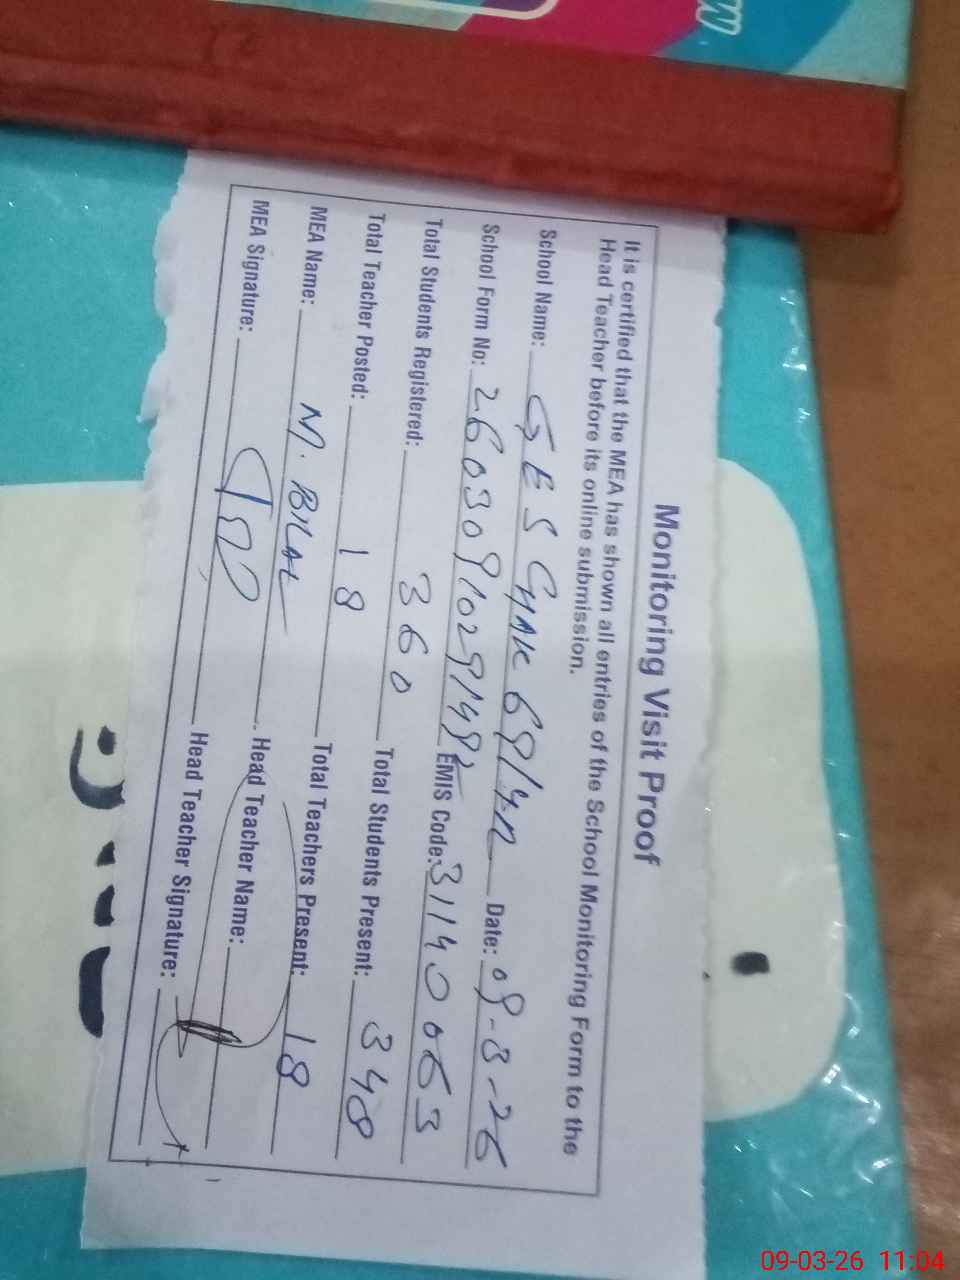 Monitoring Visit Proof
It is certified that the MEA has shown all entries of the School Monitoring Form to the
Head Teacher before its online submission.
School Name: GES CHAK 69/4-R Date: 09-3-26
School Form No: EMIS Code: 31140063
Total Students Registered: 360 Total Students Present: 348
Total Teacher Posted: 18 Total Teachers Present: 18
MEA Name: M. BILAL Head Teacher Name:
MEA Signature: Head Teacher Signature:
09-03-26 11:04